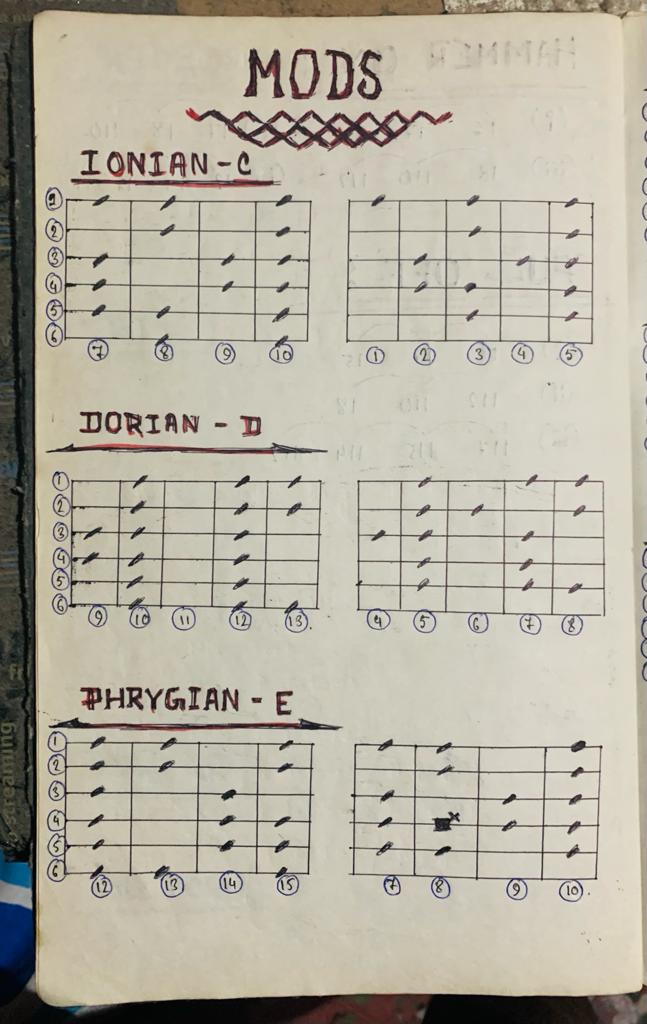 MODS
IONIAN - C
1
2
3
4
5
6
7 8 9 10 1 2 3 4 5
DORIAN - D
1
2
3
4
5
6
9 10 11 12 13. 4 5 6 7 8
PHRYGIAN - E
1
2
3
4
x
5
6
12 13 14 15 7 8 9 10.
screaming